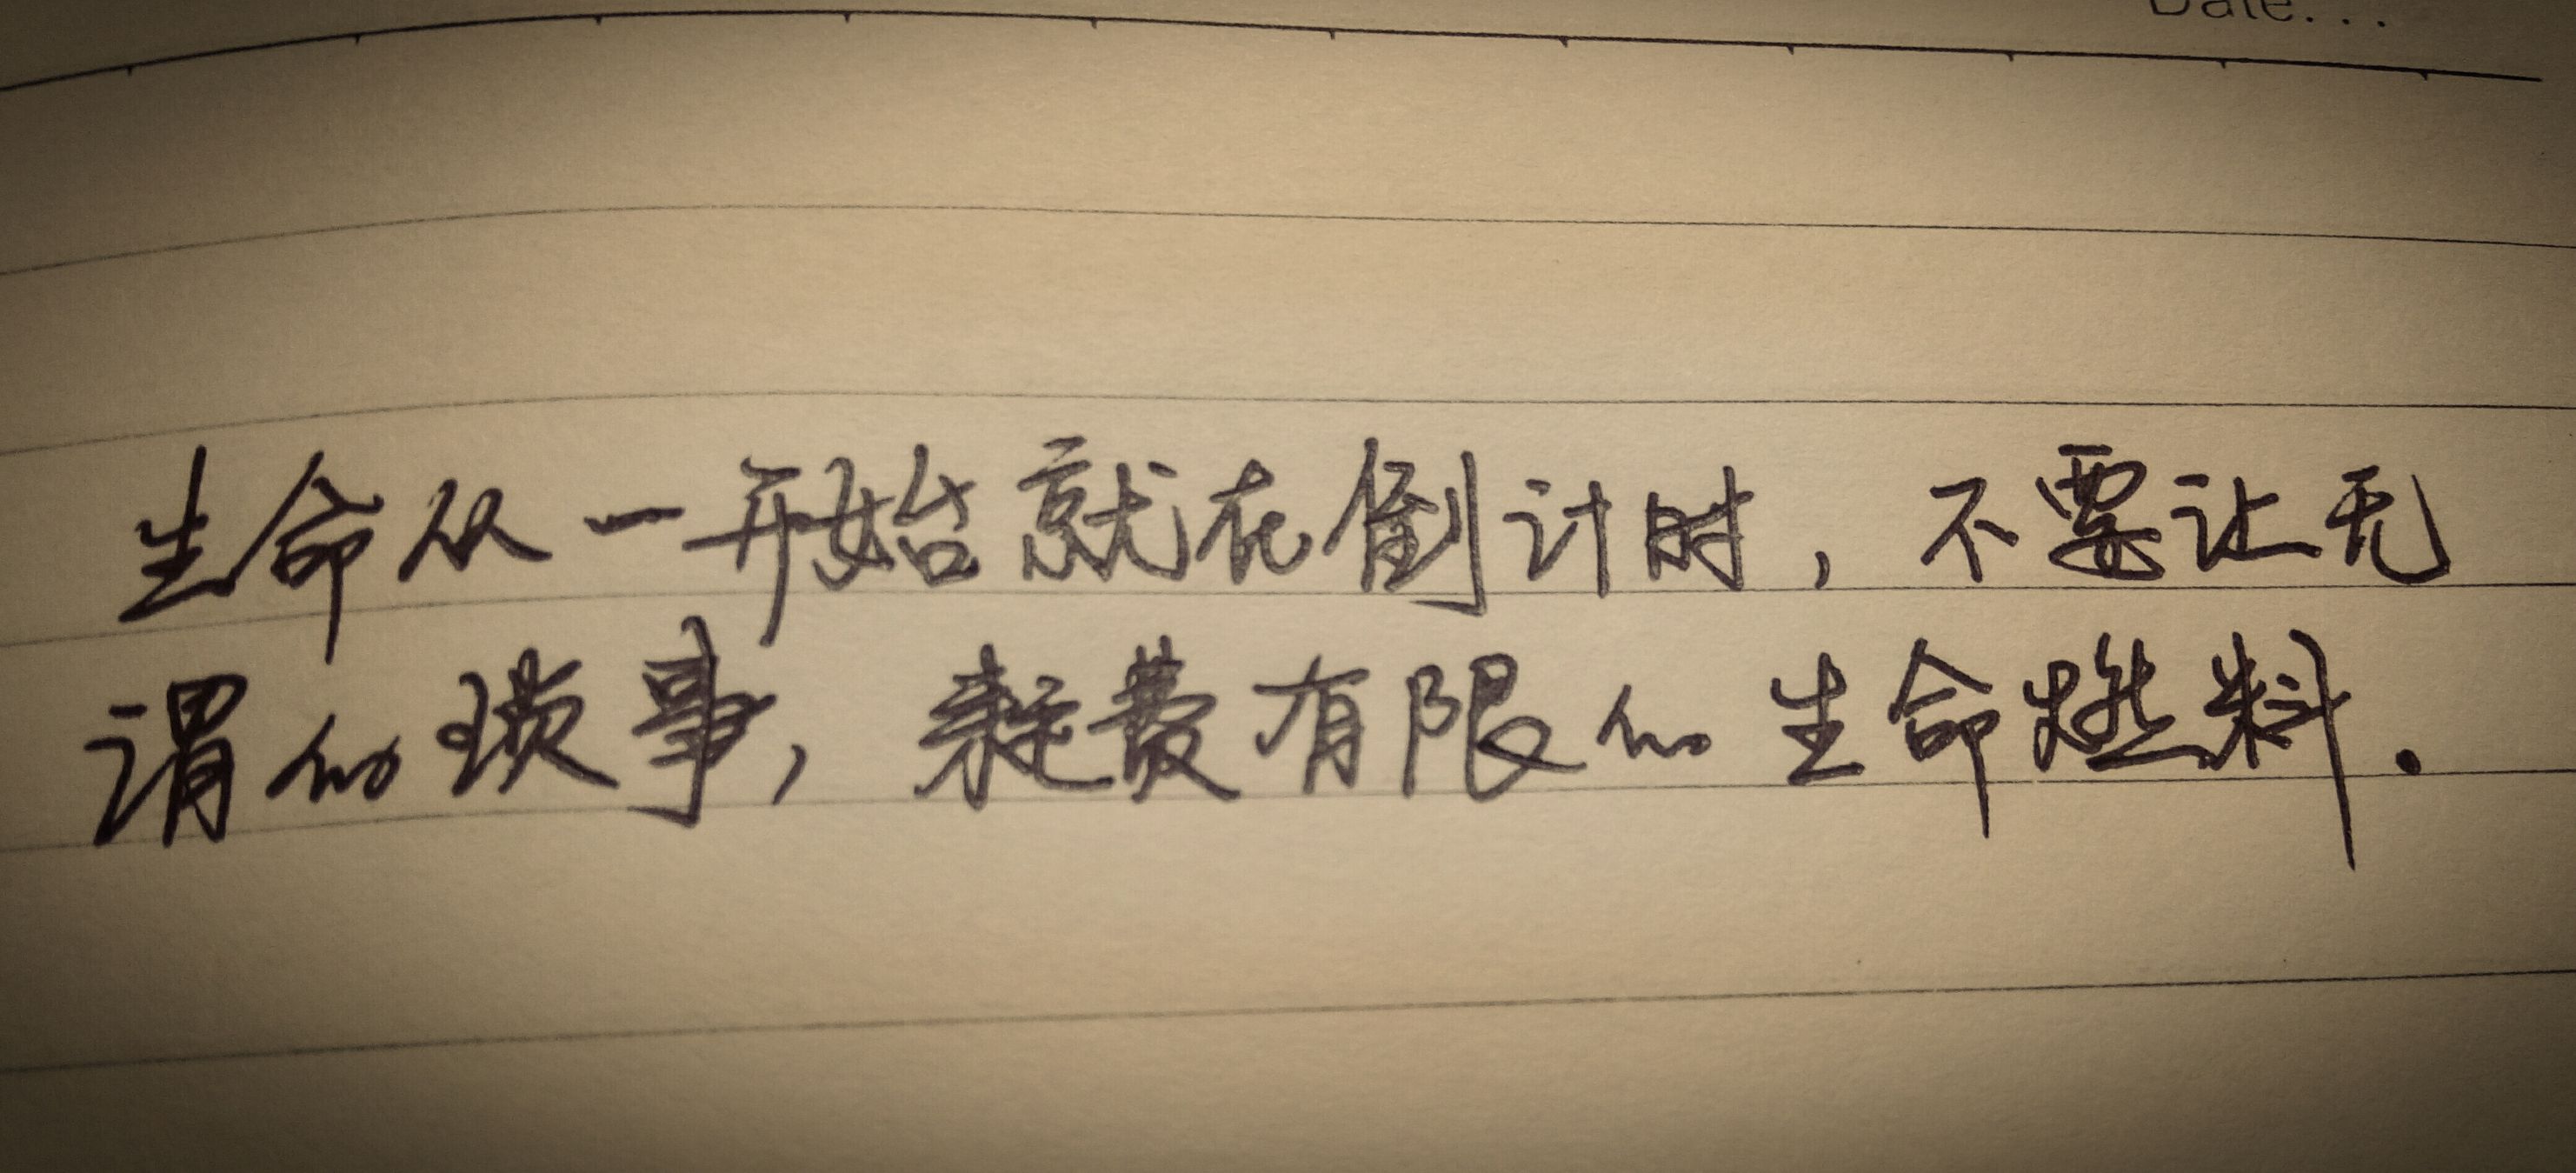 Date...
生命从一开始就在倒计时，不要让无
谓的琐事，耗费有限的生命燃料.